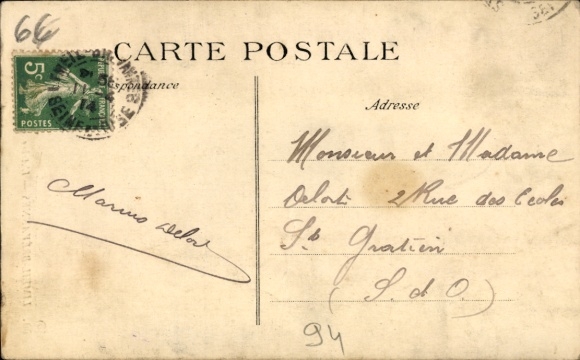 66
CARTE POSTALE
5c
POSTES
spondance
Adresse
Monsieur et Madame
Delort 2 Rue des Ecoles
St Gratien
(S. et O.)
Marius Delort
94